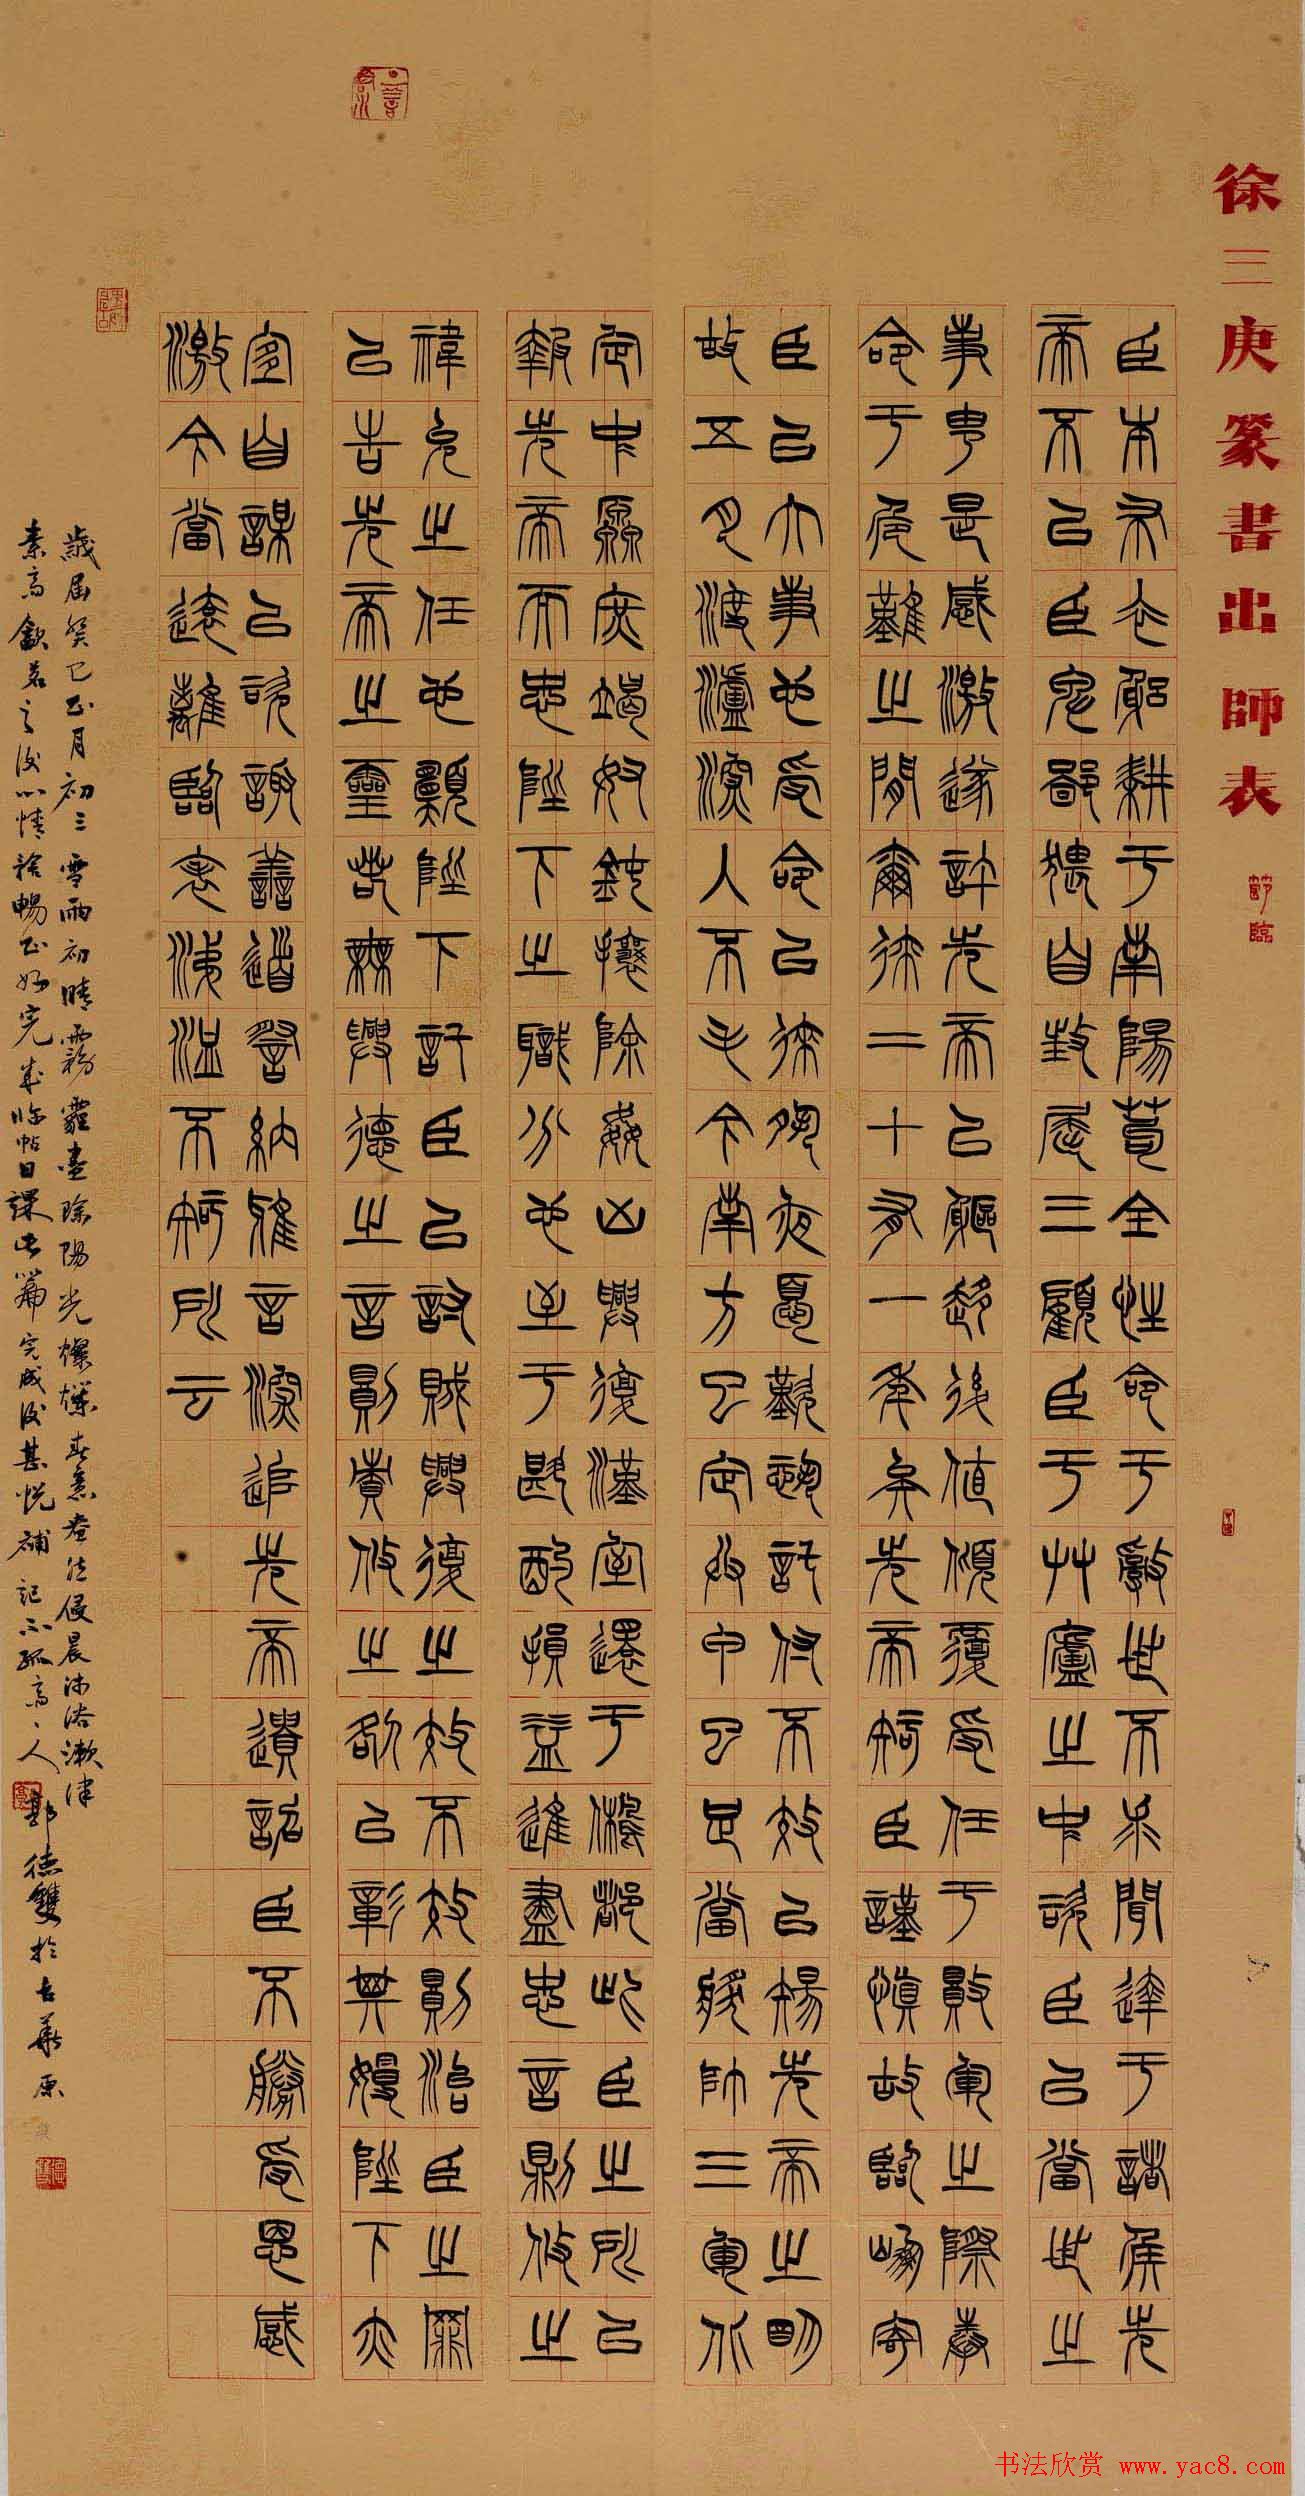 徐三庚篆書出師表
節臨
臣本布衣躬耕于南陽苟全性命于亂世不求聞達于諸侯先
帝不以臣卑鄙猥自枉屈三顧臣于艸廬之中諮臣以當世之
事由是感激遂許先帝以驅馳後值傾覆受任于敗軍之際奉
命于危難之間爾來二十有一年矣先帝知臣謹慎故臨崩寄
臣以大事也受命以來夙夜憂歎恐託付不效以傷先帝之明
故五月渡瀘深入不毛今南方已定兵甲已足當獎帥三軍北
定中原庶竭駑鈍攘除姦凶興復漢室還于舊都此臣之所以
報先帝而忠陛下之職分也至于斟酌損益進盡忠言則攸之
禕允之任也願陛下託臣以討賊興復之效不效則治臣之罪
以告先帝之靈若無興德之言則責攸之以彰其慢陛下亦
宜自謀以諮諏善道察納雅言深追先帝遺詔臣不勝受恩感
激今當遠離臨表涕泣不知所云
歲屆癸巳正月初三雪雨初晴霧霾盡除陽光燦爛春意盎然侵晨沐浴漱津
之後心情舒暢正好完成臨帖日課此篇完成後甚悅補記 德雙於古華原
书法欣赏 www.yac8.com